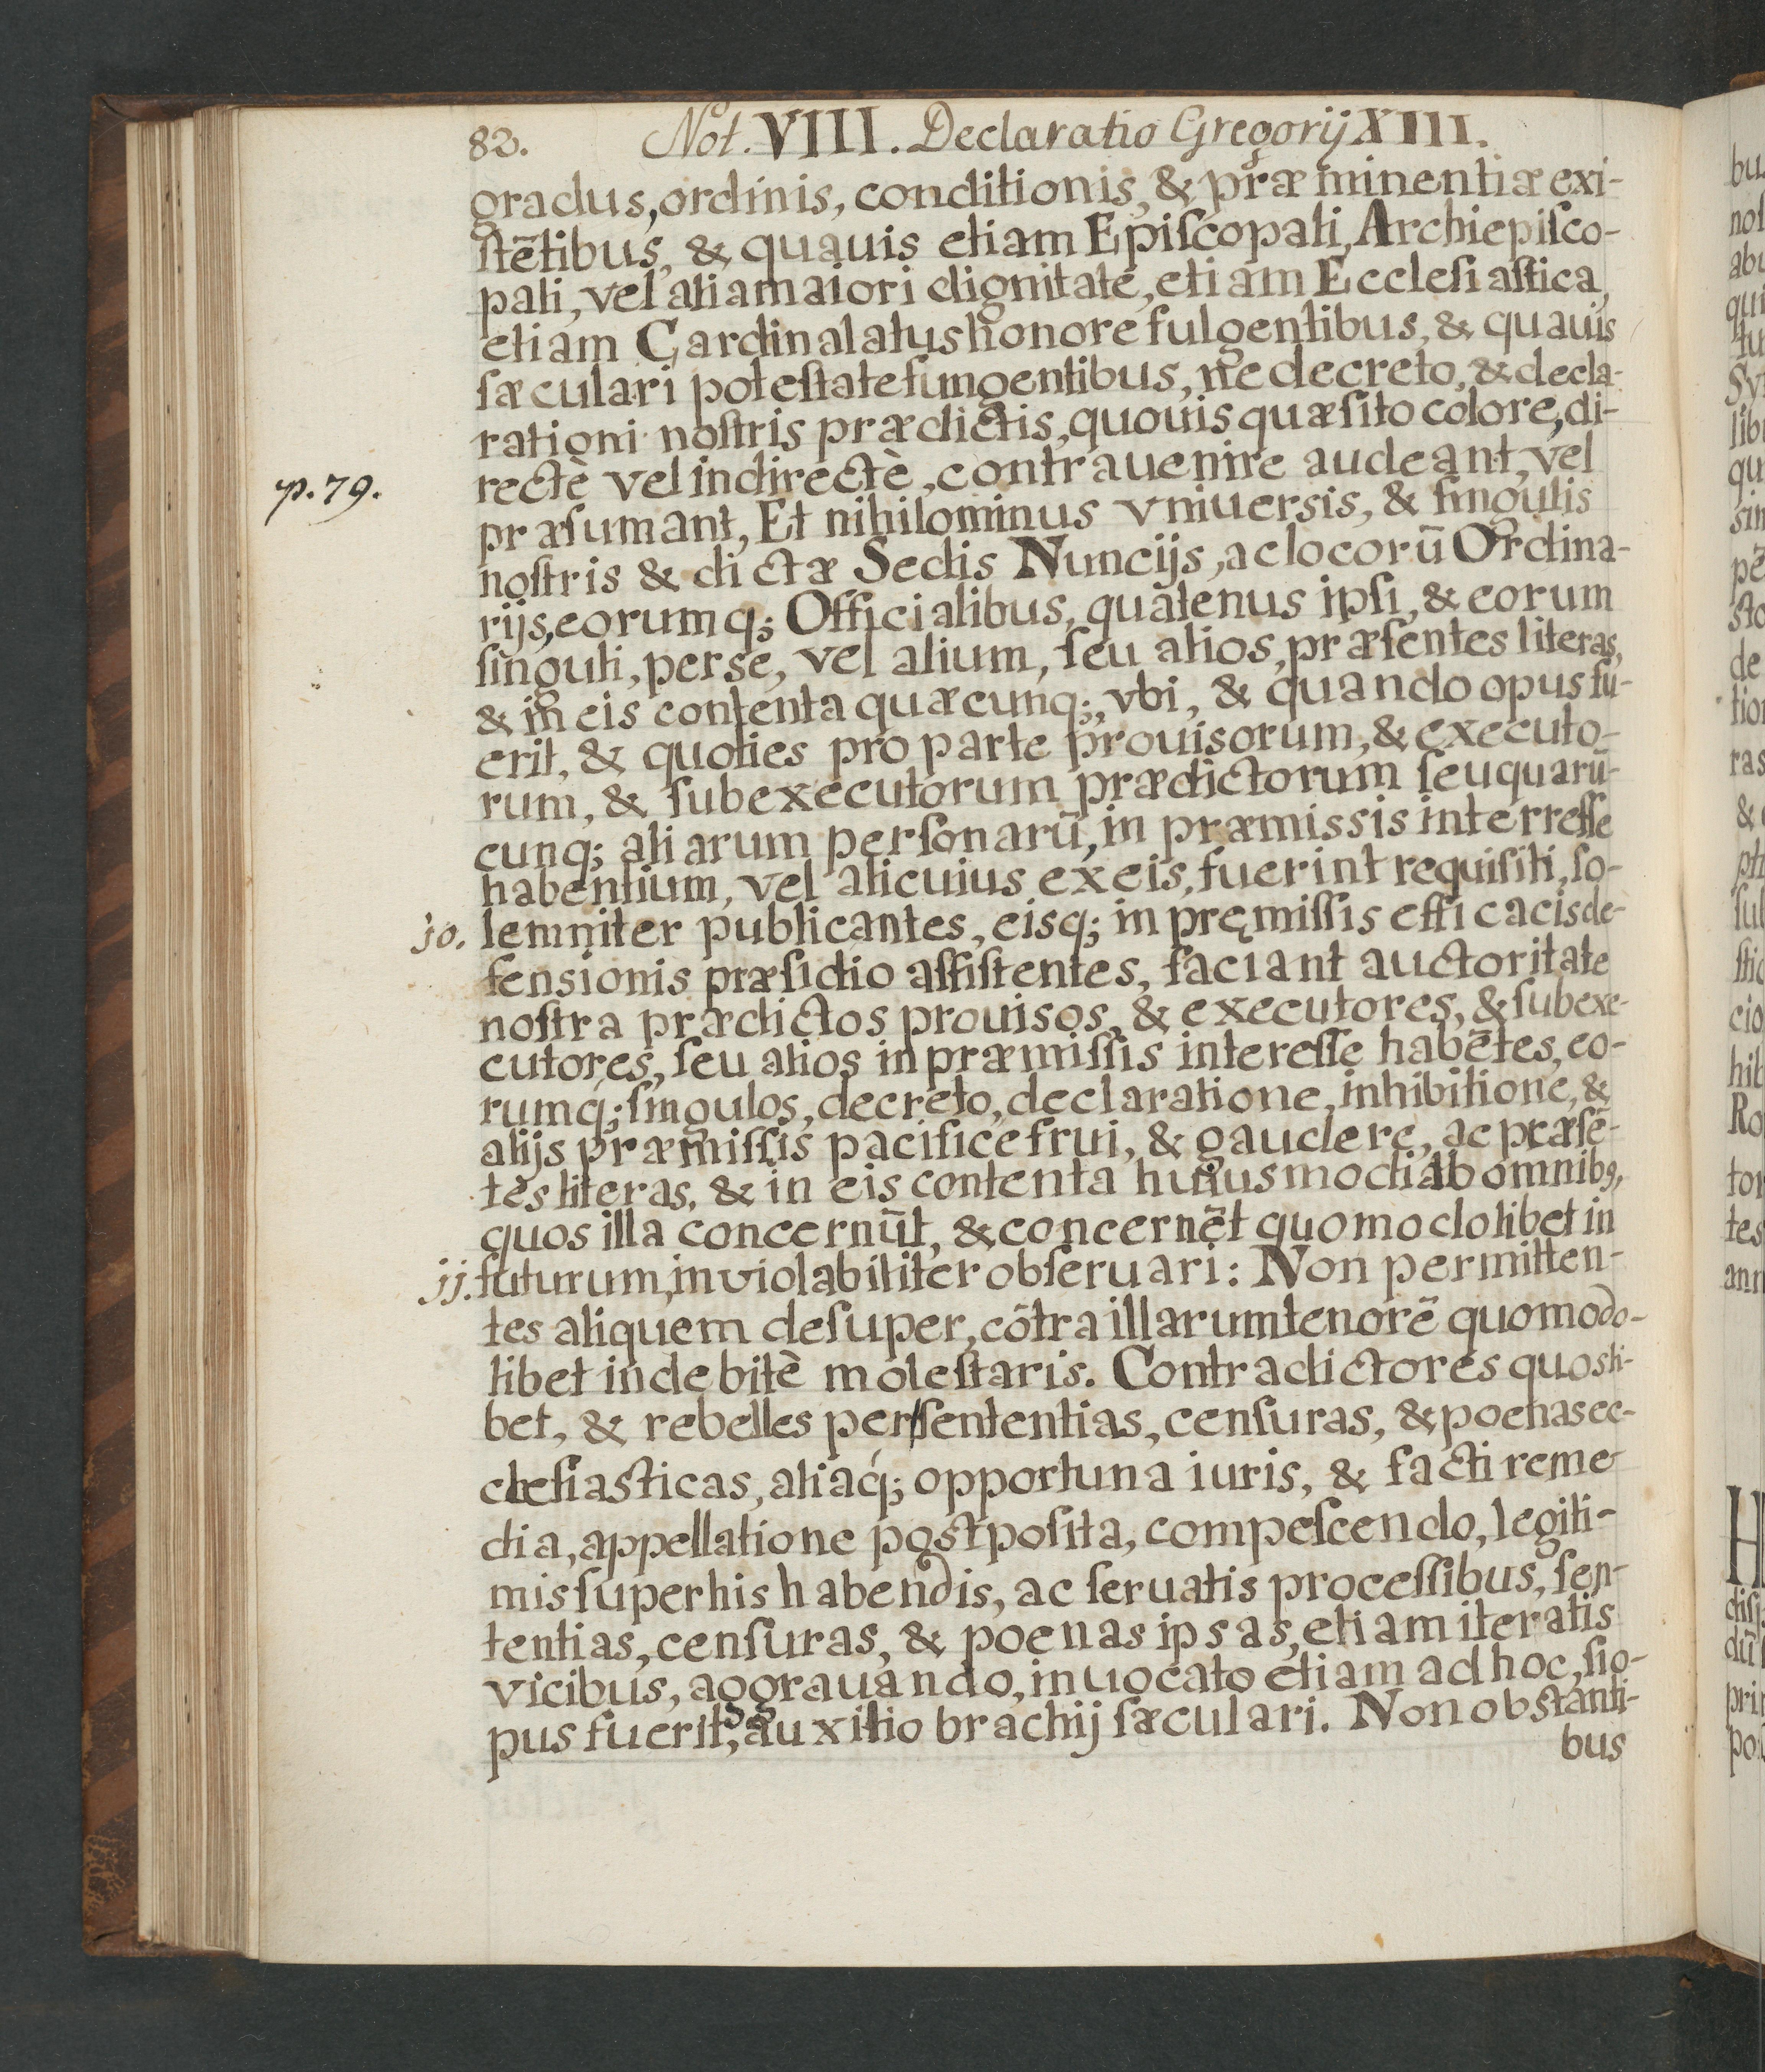 82. Not. VIII. Declaratio Gregorij XIII.
gradus, ordinis, conditionis, & præminentiæ exi-
ſtētibus, & quauis etiam Epiſcopali, Archiepiſco-
pali, vel alia maiori dignitate, etiam Eccleſiaſtica,
etiam Cardinalatus honore fulgentibus, & quauis
ſæculari poteſtate fungentibus, ne decreto, & decla-
rationi noſtris prædictis, quouis quæſito colore, di-
rectè vel indirectè, contrauenire audeant, vel
p. 79.
præſumant, Et nihilominus vniuersis, & ſingulis
noſtris & dictæ Sedis Nuncijs, ac locorū Ordina-
rijs, eorumq; Officialibus, quatenus ipſi, & eorum
ſinguli, per se, vel alium, ſeu alios, præſentes literas,
& in eis contenta quæcunq;, vbi, & quando opus fu-
erit, & quoties pro parte prouisorum, & executo-
rum, & ſubexecutorum prædictorum ſeu quarū-
cunq; aliarum perſonarū, in præmissis interreſſe
habentium, vel alicuius ex eis, fuerint requiſiti, ſo-
jo. lemniter publicantes, eisq; in pręmiſſis efficacis de-
fensionis præſidio aſſiſtentes, faciant auctoritate
noſtra prædictos prouisos, & executores, & ſubexe-
cutores, ſeu alios in præmiſſis intereſſe habētes, eo-
rumq; ſingulos, decreto, declaratione, inhibitione, &
alijs præmiſſis pacifice frui, & gaudere, ac præſē-
tes literas, & in eis contenta huiusmodi ab omnibꝯ,
quos illa concernūt, & concernēt quomodolibet in
jj. futurum, inviolabiliter obſeruari: Non permitten-
tes aliquem deſuper, cōtra illarum tenorē quomodo-
libet indebitè moleſtaris. Contradictores quosli-
bet, & rebelles per sententias, cenſuras, & poenas ec-
cleſiasticas, aliaq́; opportuna iuris, & facti reme
dia, appellatione postpoſita, compeſcendo, legiti-
mis ſuper his habendis, ac ſeruatis proceſſibus, ſen-
tentias, cenſuras, & poenas ipsas, etiam iteratis
vicibus, aggrauando, inuocato etiam ad hoc, ſi o-
pus fuerit, auxilio brachij ſæculari. Non obstanti-
bus